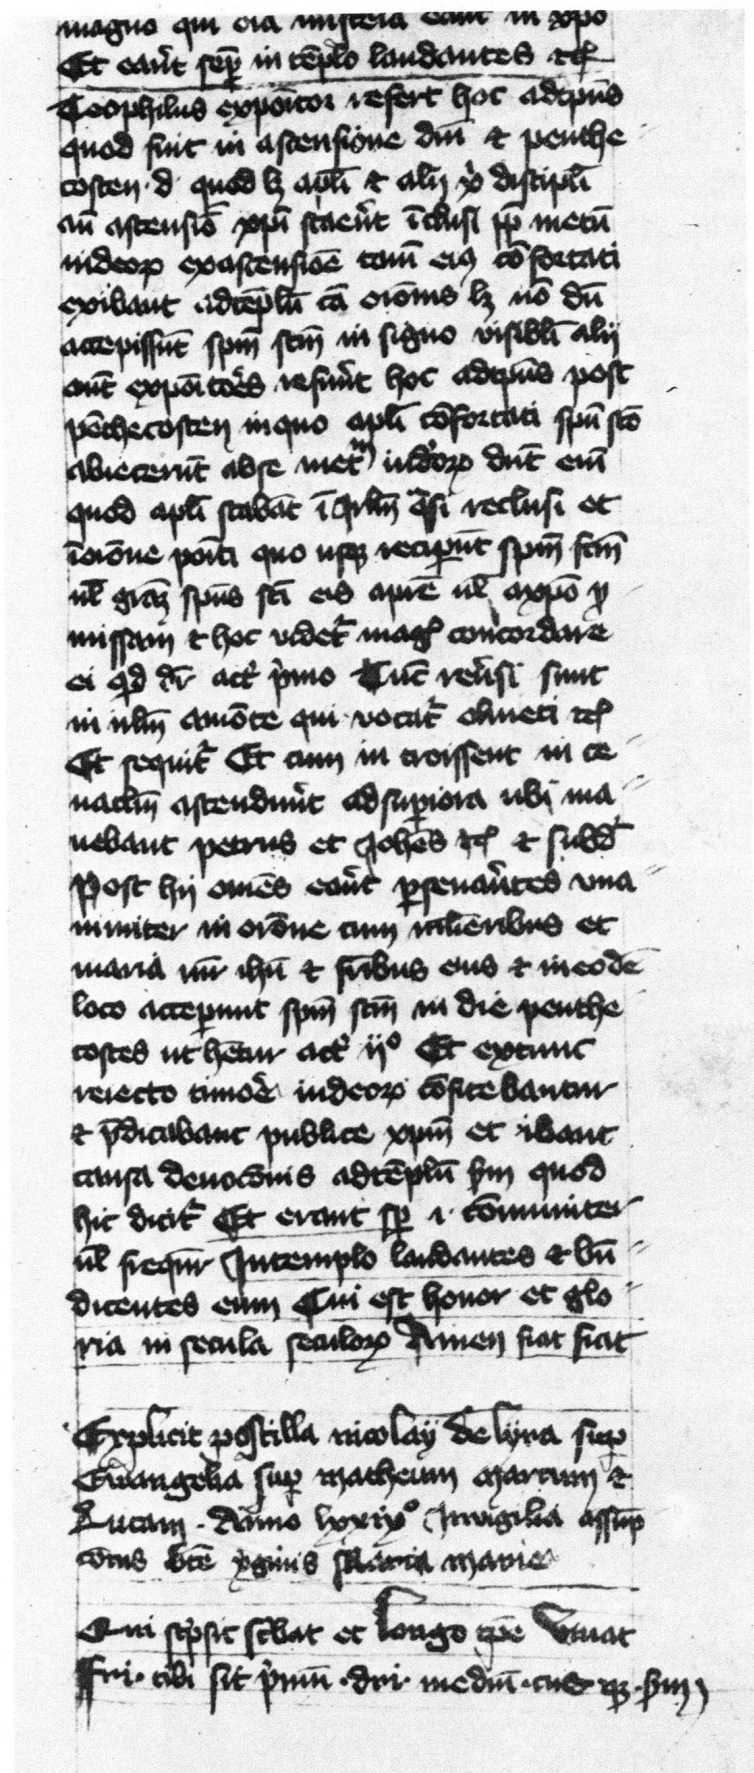 magno qui oia misteia eant in xpo
Et eant semp in templo laudantes etc
Teophilus expoitor refert hoc ad tps
quod fuit in ascensione dni et penthe
costen .d. quod lz apli et alij xpi discipli
an ascensioē xpi staent īclusi pp metū
iudeoꝝ ex ascensiōe tam eiꝰ cōfortati
exibant ad tēplū cā orōnis lz nō dū
accepissent spm scm in signo visibili alij
aut expoitoēs referūt hoc ad tps post
pēthecosten in quo apli cōfortati spū sco
abiecerūt a se metū iudeoꝝ dnt em
quod apli stabāt ī ihrlm qsi reclusi et
ī orōne poiti quo usqꝫ reciperūt spm scm
ul graz spus sci eis a pre ul a xpo pro
missam et hoc videt mag concordare
ei qd dr act primo Tūc reuersi sunt
in ihrlm a monte qui vocatr oliueti etc
Et sequitr Et cum introissent in ce
naclm ascenderūt ad superiora ubi ma
nebant petrus et Johēs etc et subd
Post hij omēs erāt perseuerantes vna
nimiter in orōne cum mlieribus et
maria mr ihu et fribus eius et in eodē
loco acceperunt spm scm in die penthe
costes ut hetur act ijº Et extunc
reiecto timoē iudeoꝝ cōfitebantur
et pdicabant publice xpm et ibant
causa deuocōnis ad tēplū sm quod
hic dicitr Et erant sp .i. cōmuniter
ul frequēr In templo laudantes et bn
dicentes eum Cui est honor et glo
ria in secula seculoꝝ Amen fiat fiat
Explicit postilla nicolaij de lyra super
Ewangelia sup matheum marcum et
Lucam . Anno lxxixº In vigilia assūp
cōnis bte vginis maria marie
Qui scpsit scbat et longo tpe viuat
Fri . tibi sit pmū . dri . mediū . cus qꝫ . sm